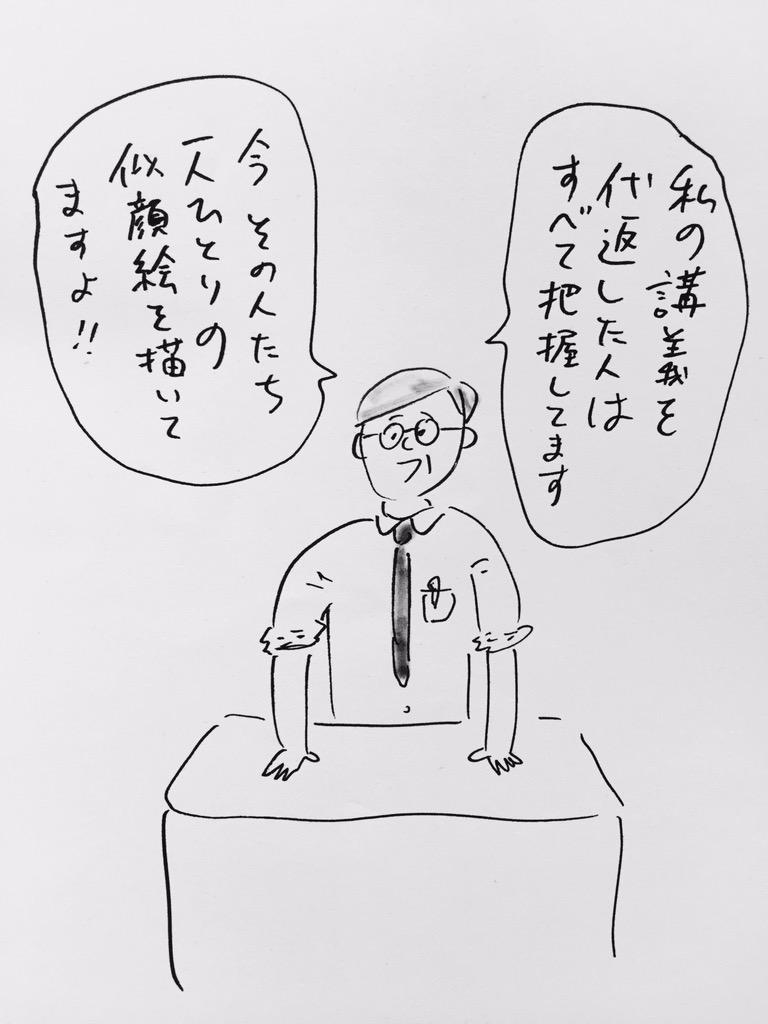 私の講義を
代返した人は
すべて把握してます
今その人たち
一人ひとりの
似顔絵を描いて
ますよ!!